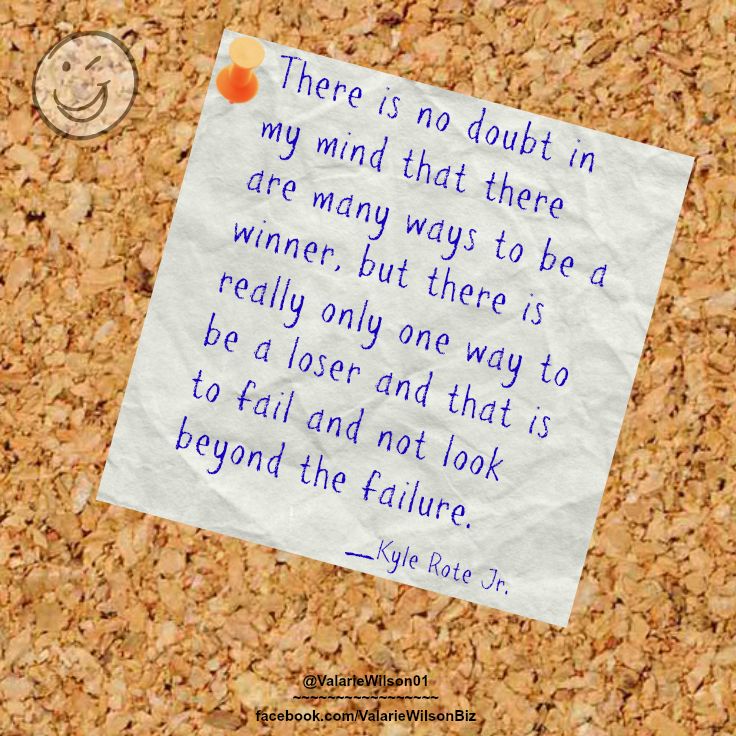 There is no doubt in
my mind that there
are many ways to be a
winner, but there is
really only one way to
be a loser and that is
to fail and not look
beyond the failure.
__Kyle Rote Jr.
@ValarieWilson01
~~~~~~~~~~~~~~~~~
facebook.com/ValarieWilsonBiz